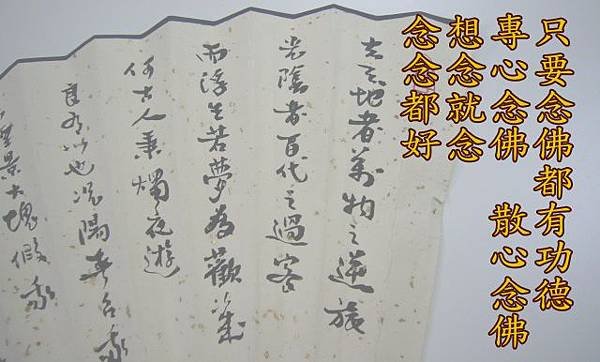 只要念佛都有功德
專心念佛 散心念佛
想念就念
念念都好
夫天地者萬物之逆旅
光陰者百代之過客
而浮生若夢為歡幾
何古人秉燭夜遊
良有以也況陽春召我
煙景大塊假我